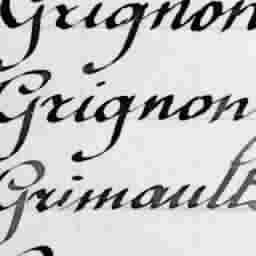 Grignon
Grignon
Grimault